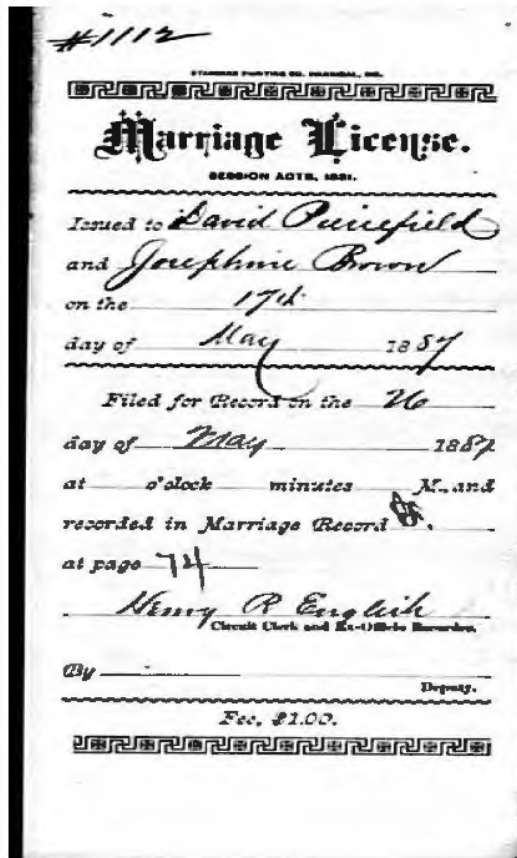 #1112
STANDARD PRINTING CO. HANNIBAL, MO.
Marriage License.
SESSION ACTS, 1881.
Issued to David
and Josephine Brown
on the 17th
day of May 1887
Filed for Record on the 26
day of May 1887
at o'clock minutes M., and
recorded in Marriage Record
at page 74
Henry R English
Circuit Clerk and Ex-Officio Recorder.
By
Deputy.
Fee, $1.00.